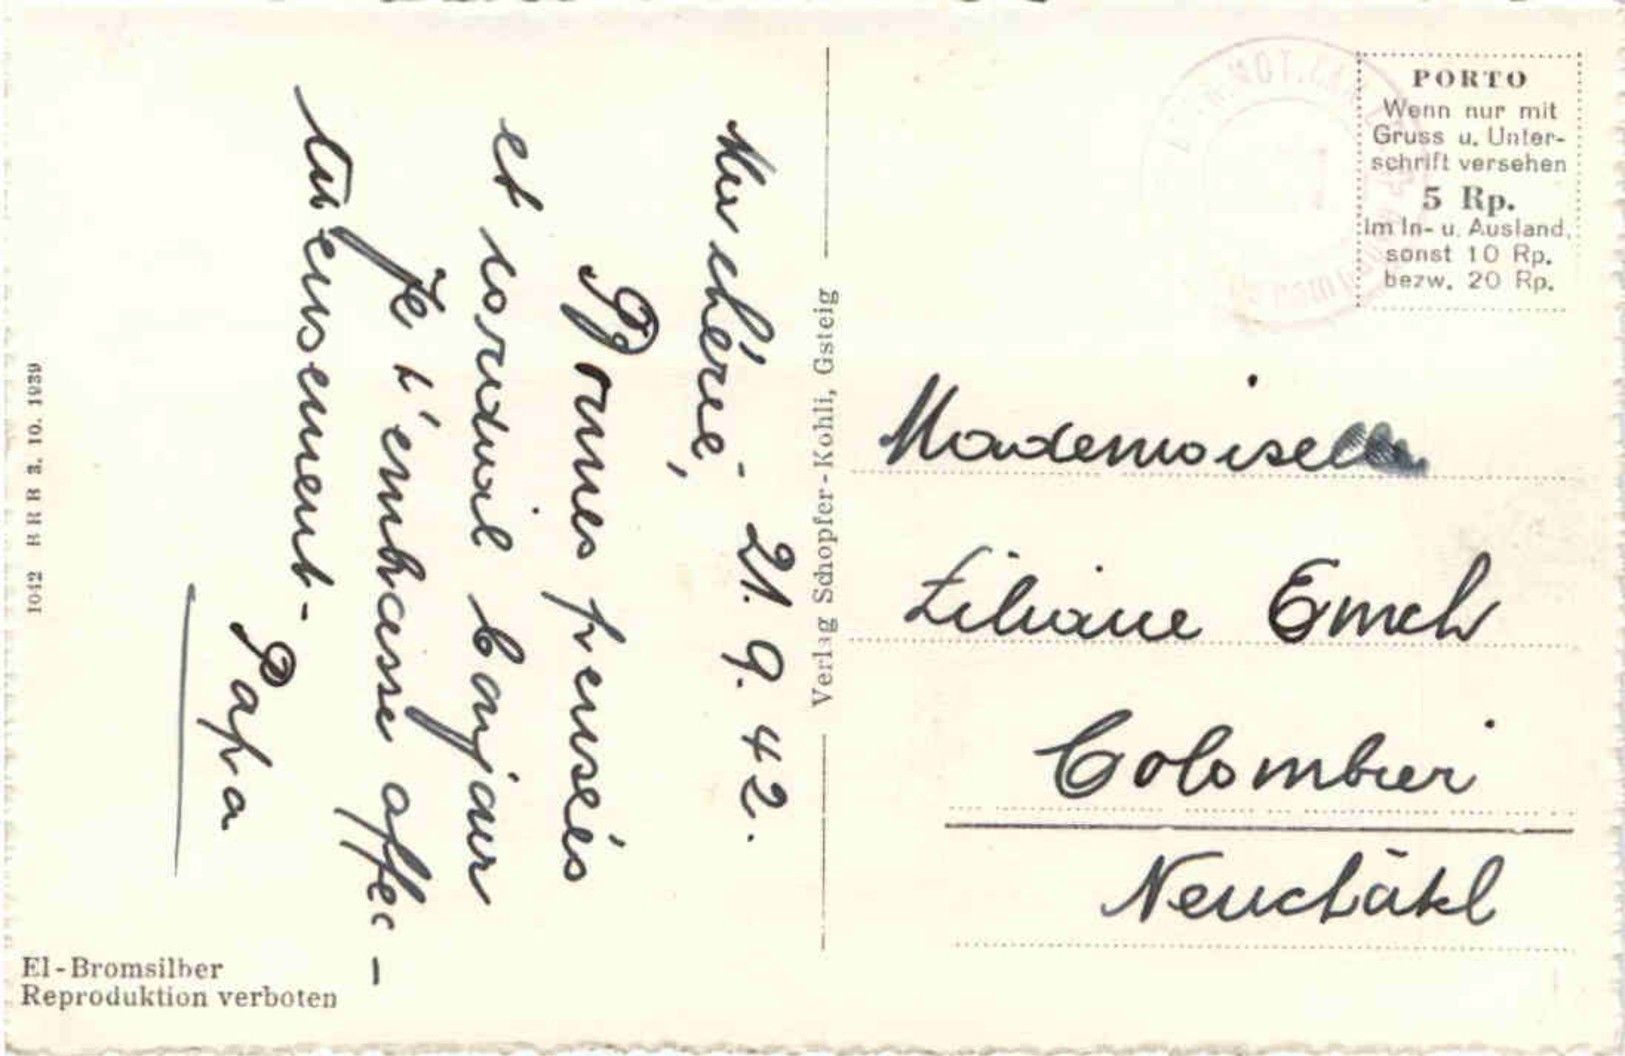 21. 9. 42.
Ma chérie,
Bonnes pensées
et cordial bonjour
Je t'embrasse affec-
tueusement-
Papa
Verlag Schopfer-Kohli, Gsteig
PORTO
Wenn nur mit
Gruss u. Unter-
schrift versehen
5 Rp.
Im In- u. Ausland,
sonst 10 Rp.
bezw. 20 Rp.
Mademoiselle
Liliane Emch
Colombier
Neuchâtel
1042 BRB 3. 10. 1939
El-Bromsilber
Reproduktion verboten